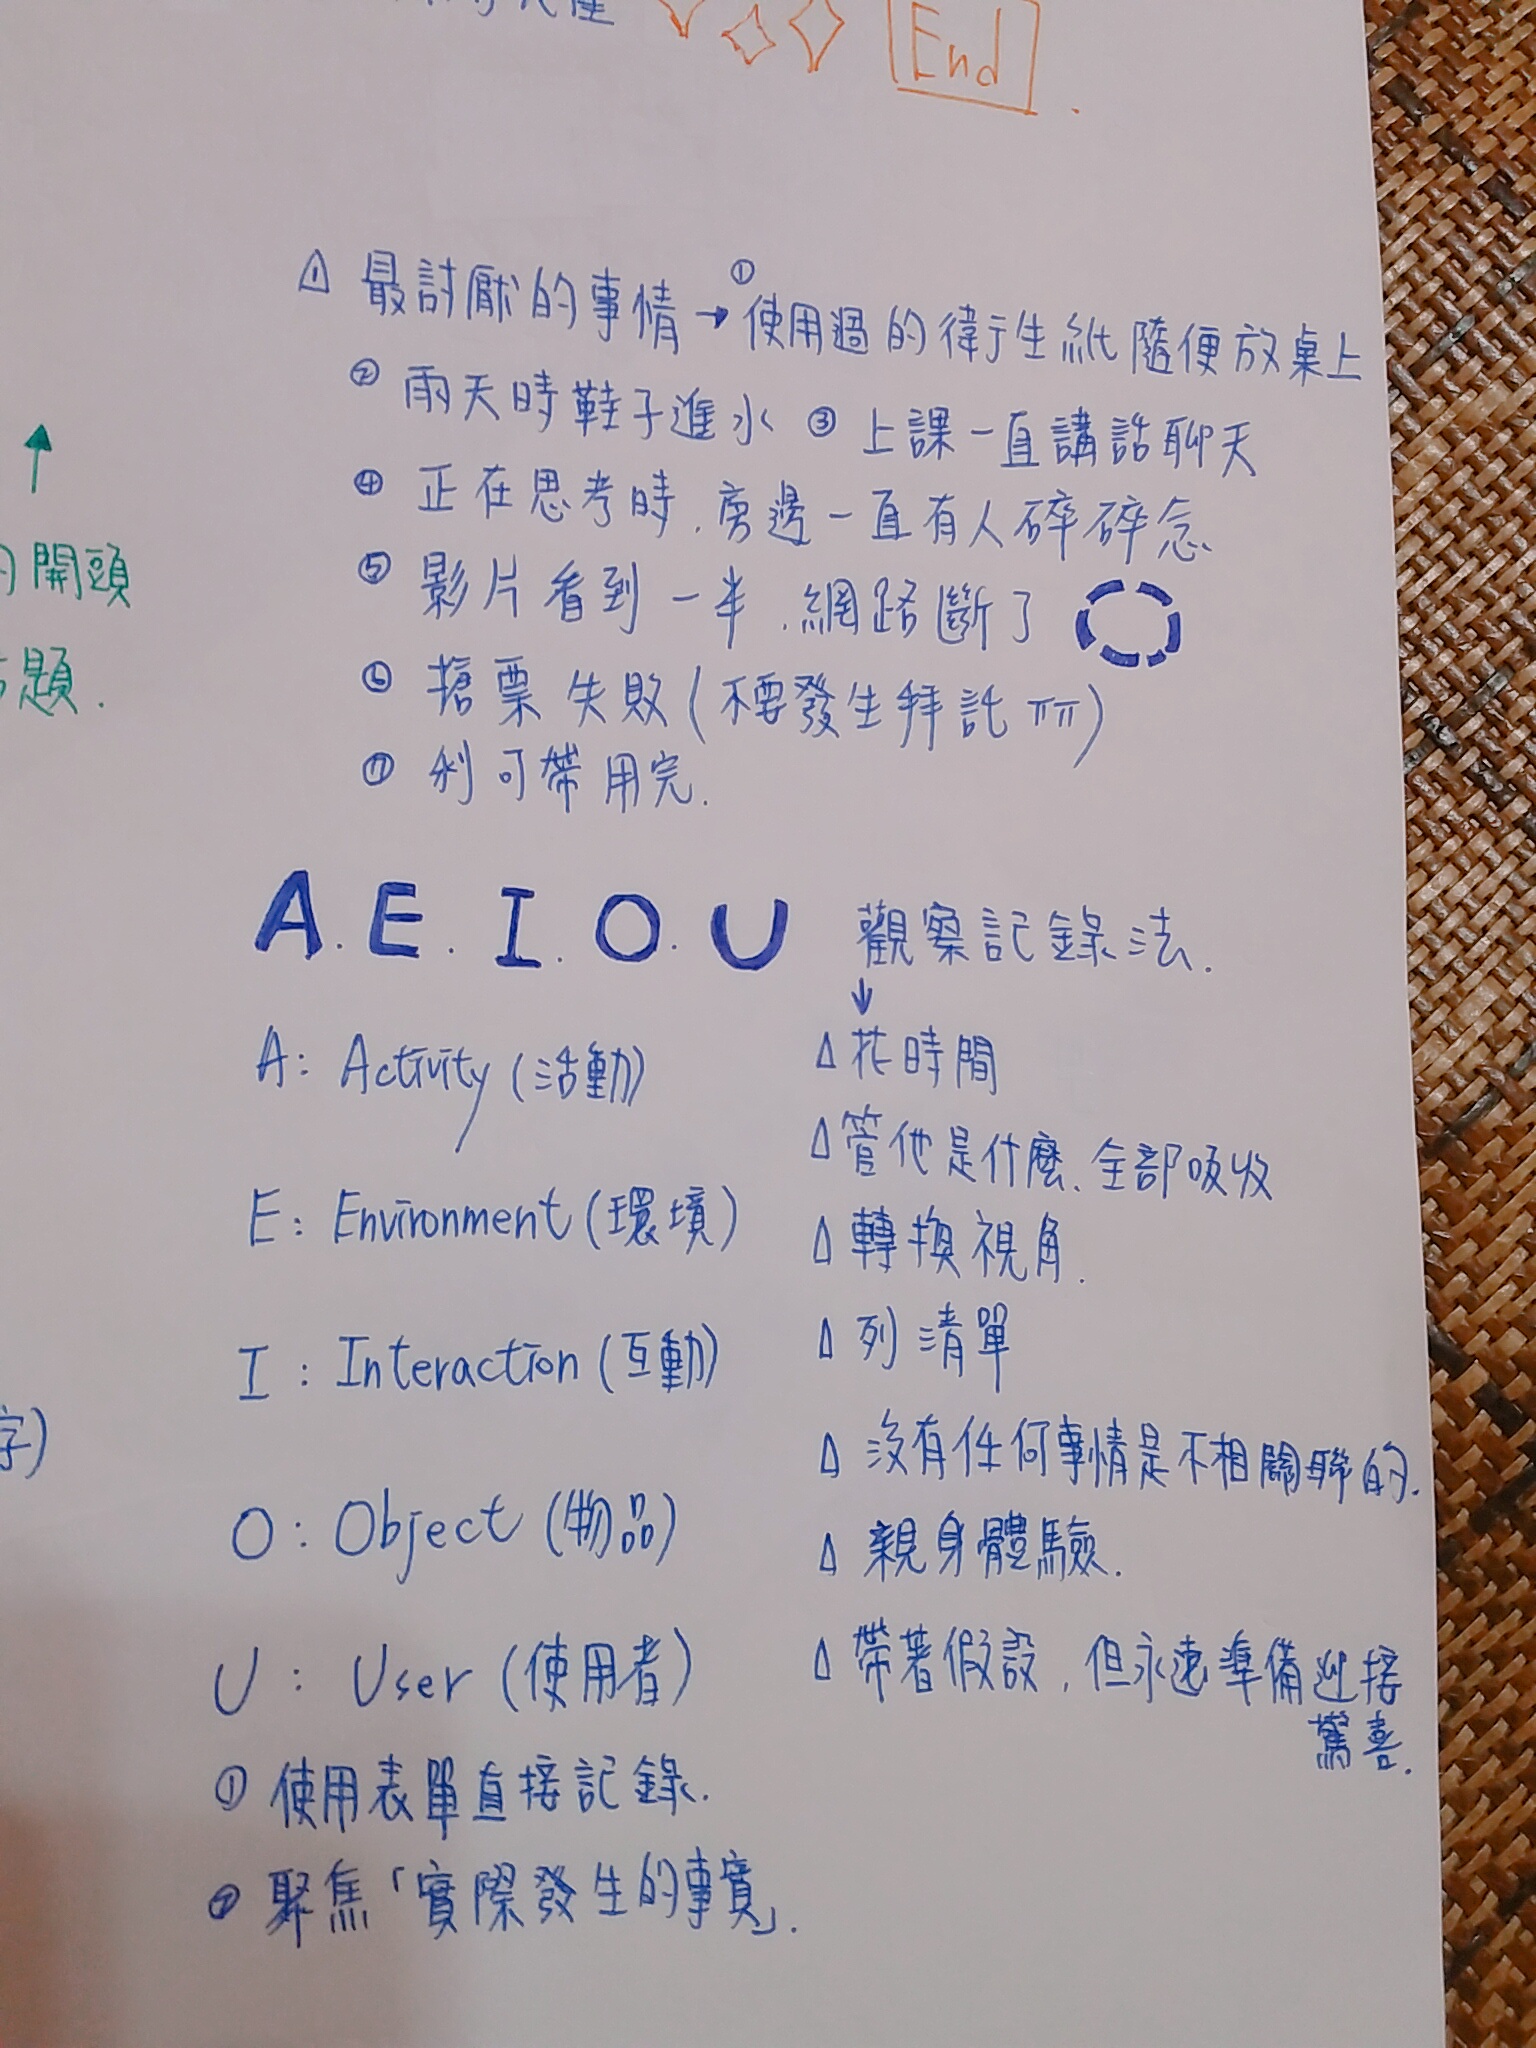 End
最討厭的事情→①使用過的衛生紙隨便放桌上
②雨天時鞋子進水 ③上課一直講話聊天
④正在思考時,旁邊一直有人碎碎念
的開頭
⑤影片看到一半,網路斷了
題.
⑥搶票失敗(不要發生拜託 ㄒㄒ)
⑦利可帶用完.
A.E.I.O.U 觀察記錄法.
↓
A: Activity (活動)
△花時間
△管他是什麼、全部吸收
E: Environment (環境)
△轉換視角.
I: Interaction (互動)
△列清單
字)
△沒有任何事情是不相關聯的.
O: Object (物品)
△親身體驗.
U: User (使用者)
△帶著假設,但永遠準備迎接
驚喜.
①使用表單直接記錄.
②聚焦「實際發生的事實」.